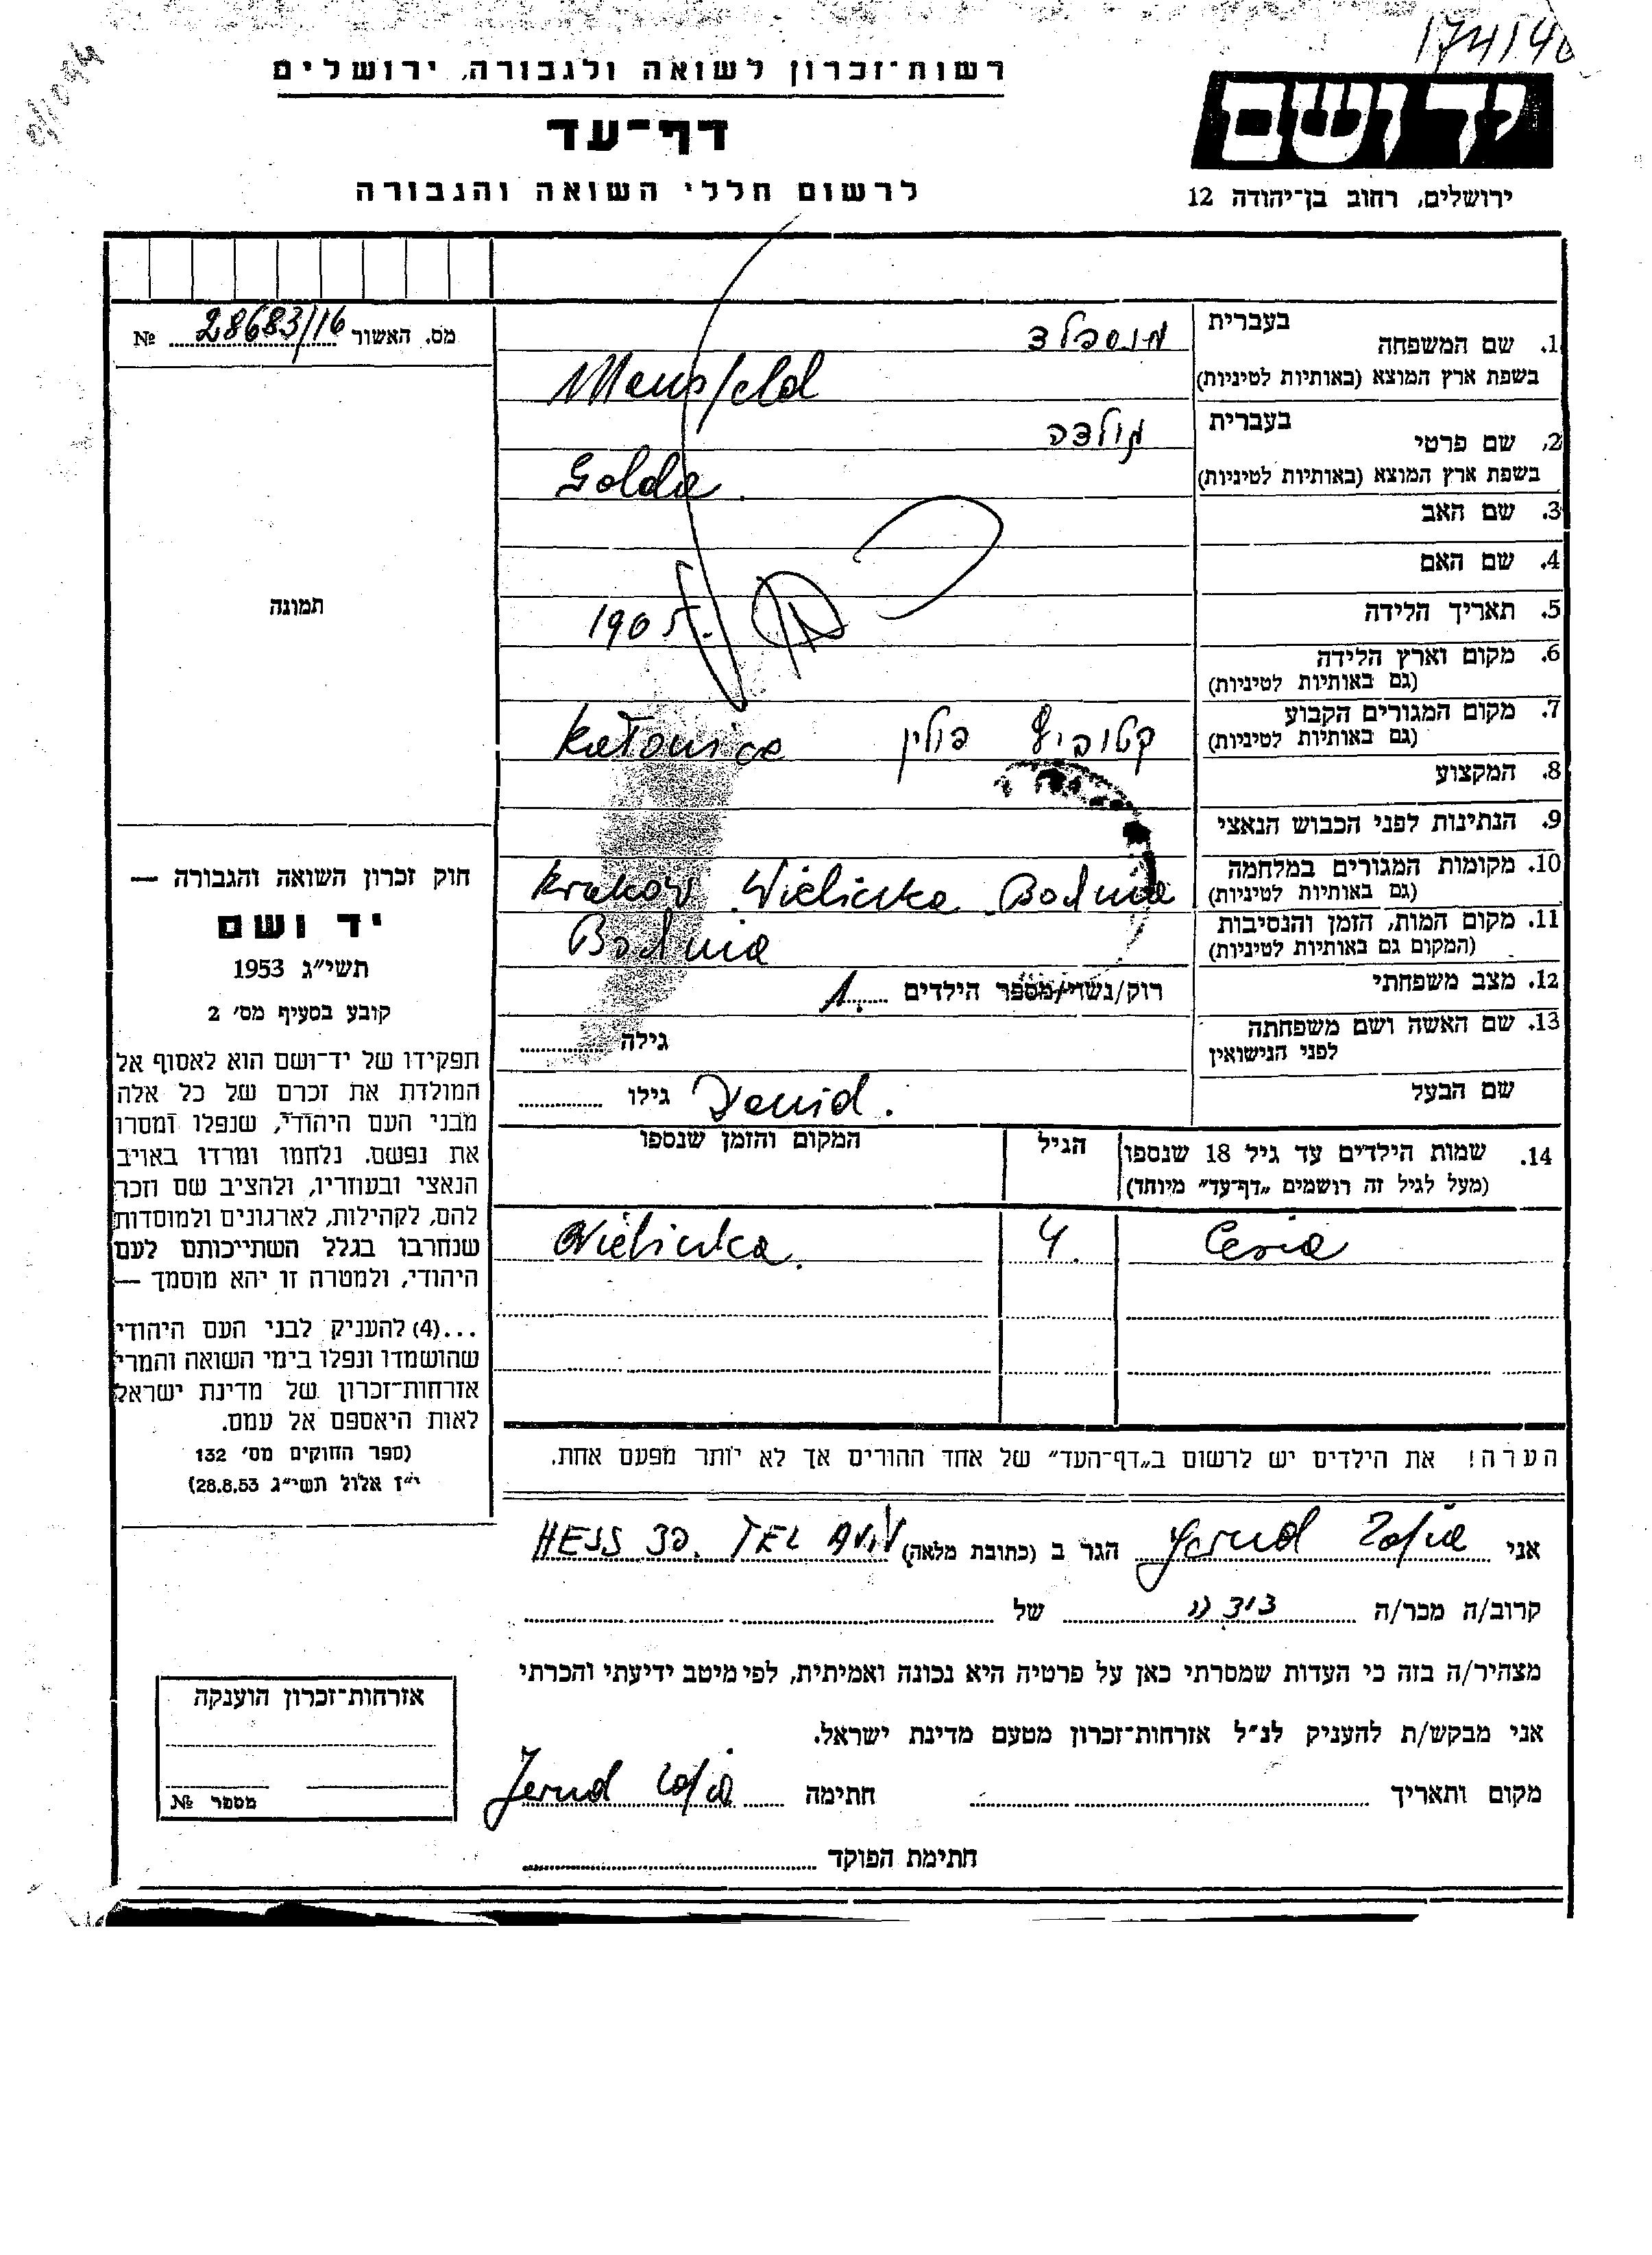 174140
רשות־זכרון לשואה ולגבורה, ירושלים
דף־עד
לרשום חללי השואה והגבורה
יד ושם
ירושלים, רחוב בן־יהודה 12
מס. האשור 28683/16 №
תמונה
חוק זכרון השואה והגבורה —
יד ושם
תשי״ג 1953
קובע בסעיף מס׳ 2
תפקידו של יד־ושם הוא לאסוף אל
המולדת את זכרם של כל אלה
מבני העם היהודי, שנפלו ומסרו
את נפשם, נלחמו ומרדו באויב
הנאצי ובעוזריו, ולהציב שם וזכר
להם, לקהילות, לארגונים ולמוסדות
שנחרבו בגלל השתייכותם לעם
היהודי, ולמטרה זו יהא מוסמך —
...(4) להעניק לבני העם היהודי
שהושמדו ונפלו בימי השואה והמרי
אזרחות־זכרון של מדינת ישראל
לאות היאספם אל עמם.
(ספר החוקים מס׳ 132
י״ז אלול תשי״ג 28.8.53)
1. שם המשפחה בעברית מנספלד
בשפת ארץ המוצא (באותיות לטיניות) Mansfeld
2. שם פרטי בעברית גולדה
בשפת ארץ המוצא (באותיות לטיניות) Golda.
3. שם האב
4. שם האם
5. תאריך הלידה 1905.
6. מקום וארץ הלידה
(גם באותיות לטיניות)
7. מקום המגורים הקבוע קטוביץ פולין Katowice
(גם באותיות לטיניות)
8. המקצוע
9. הנתינות לפני הכבוש הנאצי
10. מקומות המגורים במלחמה Krakow Wieliczka Bochnia
(גם באותיות לטיניות)
11. מקום המות, הזמן והנסיבות Bochnia
(המקום גם באותיות לטיניות)
12. מצב משפחתי רוק/נשוי/מספר הילדים 1.
13. שם האשה ושם משפחתה גילה
לפני הנישואין
שם הבעל Dawid. גילו
14. שמות הילדים עד גיל 18 שנספו הגיל המקום והזמן שנספו
(מעל לגיל זה רושמים „דף־עד״ מיוחד)
Cesia 4. Wieliczka.
הערה! את הילדים יש לרשום ב„דף־העד״ של אחד ההורים אך לא יותר מפעם אחת.
אני Jerud Zofia הגר ב (כתובת מלאה) HESS 30. TEL AVIV
קרוב/ה מכר/ה של
מצהיר/ה בזה כי העדות שמסרתי כאן על פרטיה היא נכונה ואמיתית, לפי מיטב ידיעתי והכרתי
אני מבקש/ת להעניק לנ״ל אזרחות־זכרון מטעם מדינת ישראל.
מקום ותאריך חתימה Jerud Zofia
חתימת הפוקד
אזרחות־זכרון הוענקה
מספר №